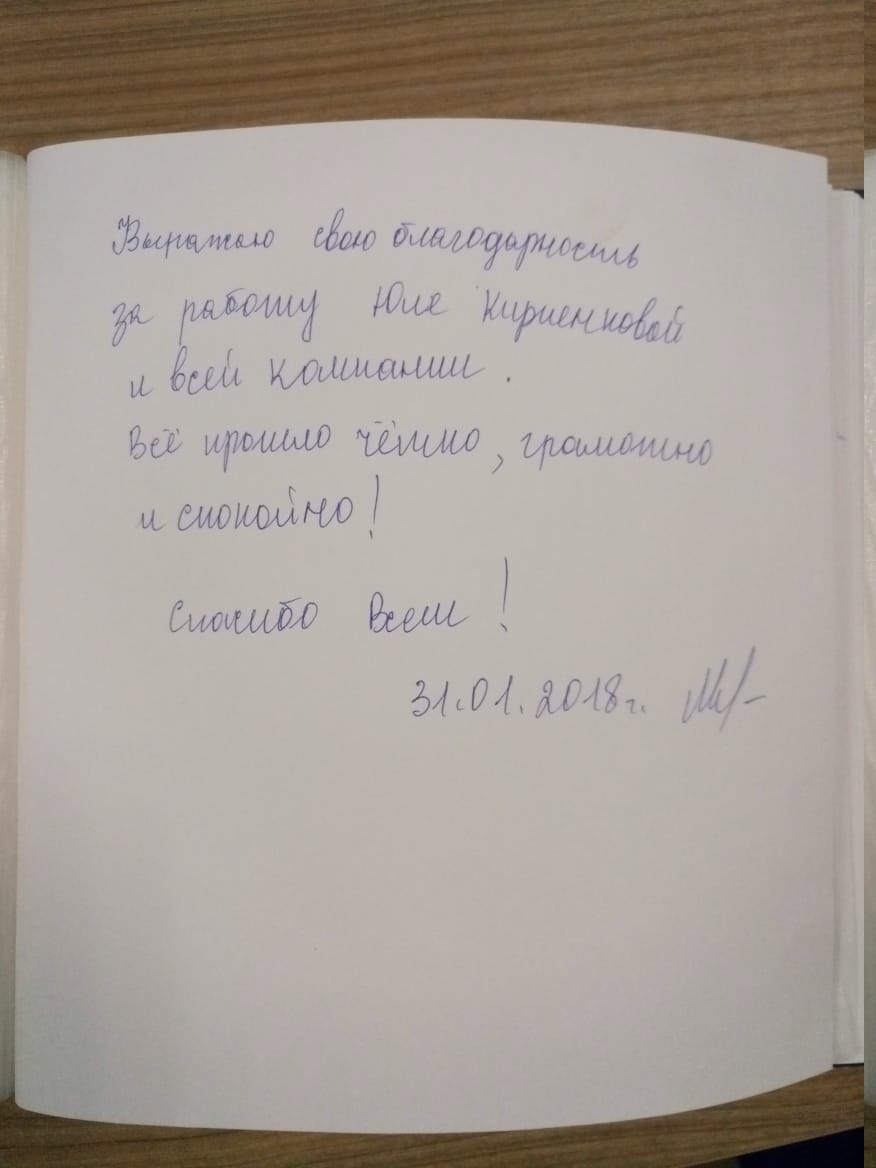 Выражаю свою благодарность
за работу Юле Кириенковой
и всей компании.
Всё прошло чётко, грамотно
и спокойно!
Спасибо Всем!
31.01.2018г.